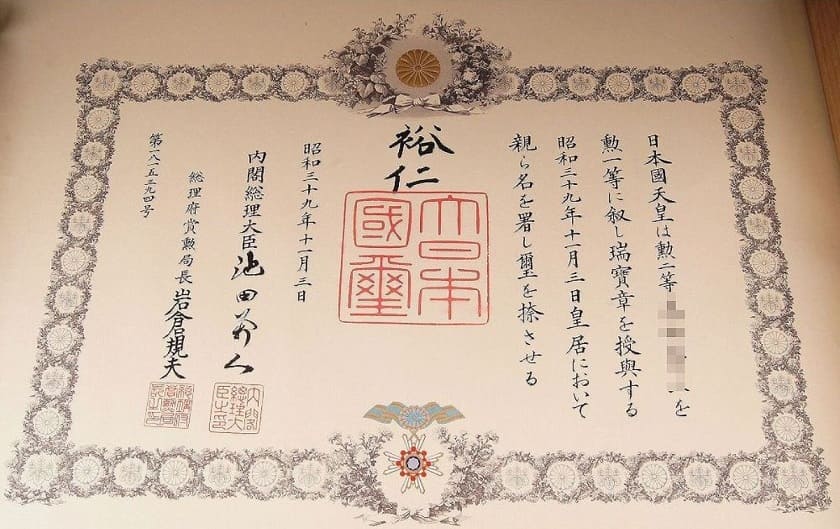 日本國天皇は勲二等 を
勲一等に叙し瑞寶章を授與する
昭和三十九年十一月三日皇居において
親ら名を署し璽を捺させる
裕仁
大日本
國璽
昭和三十九年十一月三日
内閣総理大臣 池田勇人
内閣総理大臣之印
総理府賞勲局長 岩倉規夫
第一八一五三九四号